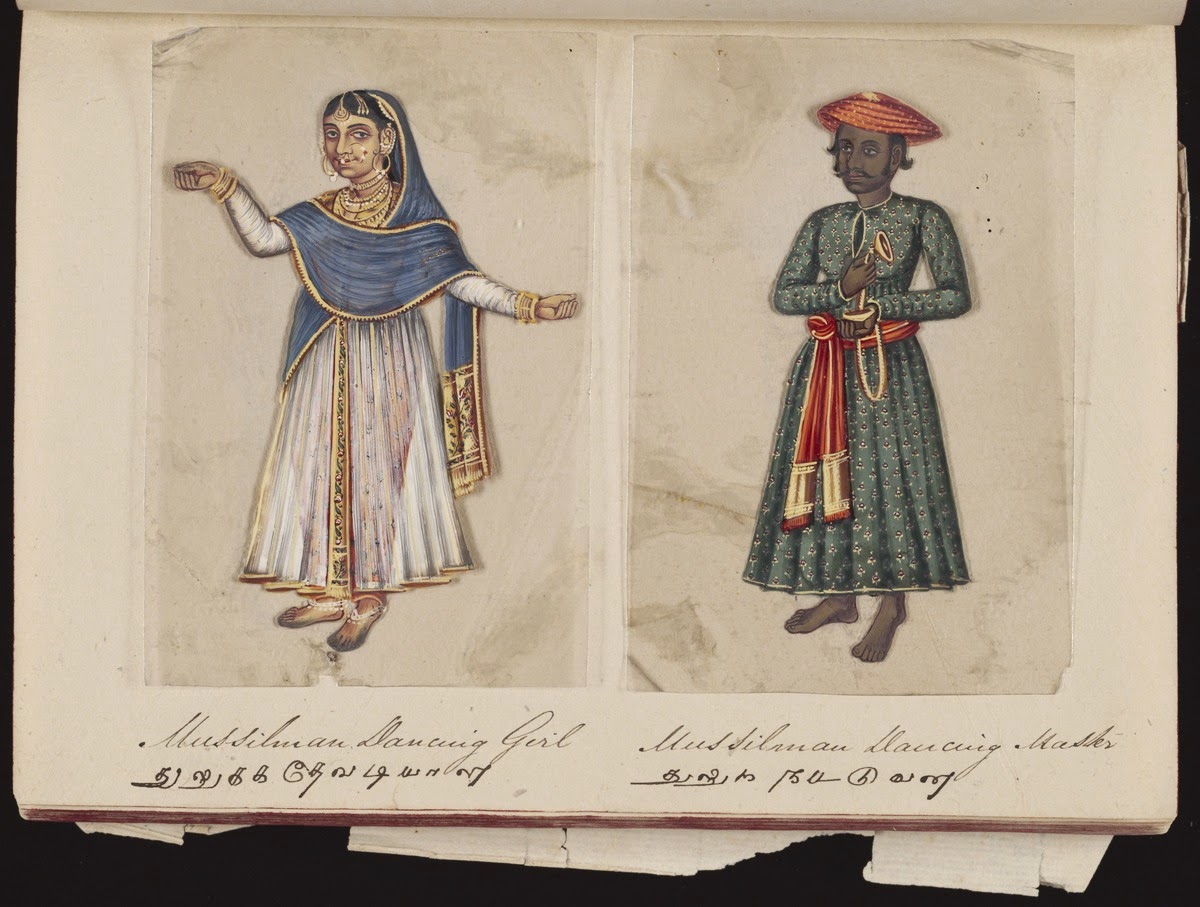 Mussilman Dancing Girl
துலுக்க தேவடியாள்
Mussilman Dancing Master
துலுக நட்டுவன்